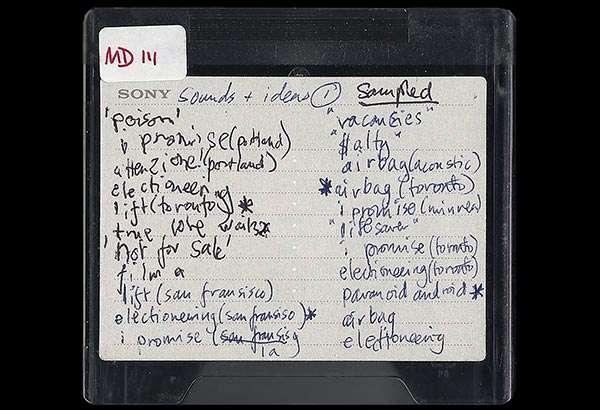 MD 111
SONY sounds + ideas ① Sampled
'poison'
i promise (portland)
attenzione! (portland)
electioneering
lift (toronto) *
true love waits *
'Not for Sale'
lift (san fransisco)
electioneering (san fransiso) *
i promise (san fransis
la
"vacancies"
"$alty"
airbag (acoustic)
* airbag (toronto)
i promise (minnea)
"lifesaver"
i promise (toronto)
elecioneering (toronto)
paranoid android *
airbag
electioneering